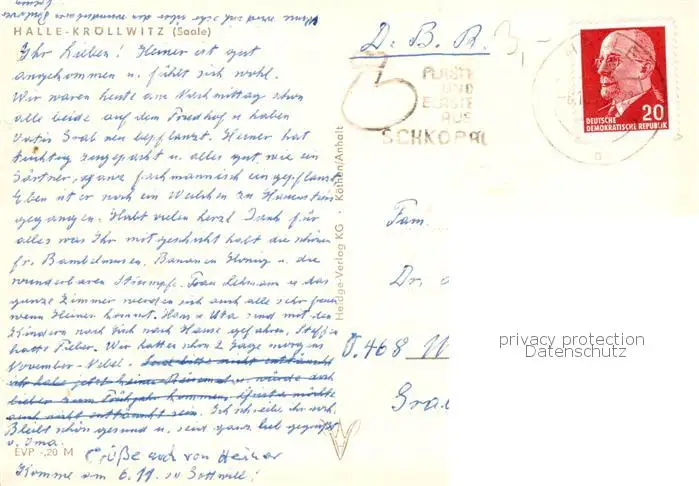 HALLE-KRÖLLWITZ (Saale)
Ihr Lieben! Heiner ist gut
angekommen u. fühlt sich wohl.
Wir waren heute am Nachmittag schon
alle beide auf dem Friedhof u. haben
Vatis Grab neu bepflanzt. Heiner hat
tüchtig zugepackt u. alles gut, wie ein
Gärtner, ganz fachmännisch eingepflanzt.
Eben ist er noch ein Weilchen zu
gegangen. Habt vielen herzl. Dank für
alles was Ihr mitgeschickt habt die schönen
fr. Bananen Honig u. die
wunderbaren Strümpfe. Frau Lehmann u. das
ganze Zimmer werden sich auch alle sehr freuen
wenn Heiner kommt. Hans u. Uta sind mit den
Kindern nach Hause gefahren, Steffen
hatte Fieber. Wir hatten schon 2 Tage morgens
November-Nebel. Seid bitte nicht enttäuscht
ich habe jetzt keine u. würde auch
lieber zum Frühjahr kommen,
auch nicht enttäuscht sein. Ich schreibe ihr noch.
Bleibt schön gesund u. seid ganz lieb gegrüßt
v. Oma.
EVP -,20 M
Grüße auch von Heiner
Komme am 6.11. in !
Heldge-Verlag KG · Köthen/Anhalt
D. B. R.
3,-
PLASTE
UND
ELASTE
AUS
SCHKOPAU
20
DEUTSCHE
DEMOKRATISCHE REPUBLIK
Fam.
Dr.
V. 468
privacy protection
Datenschutz